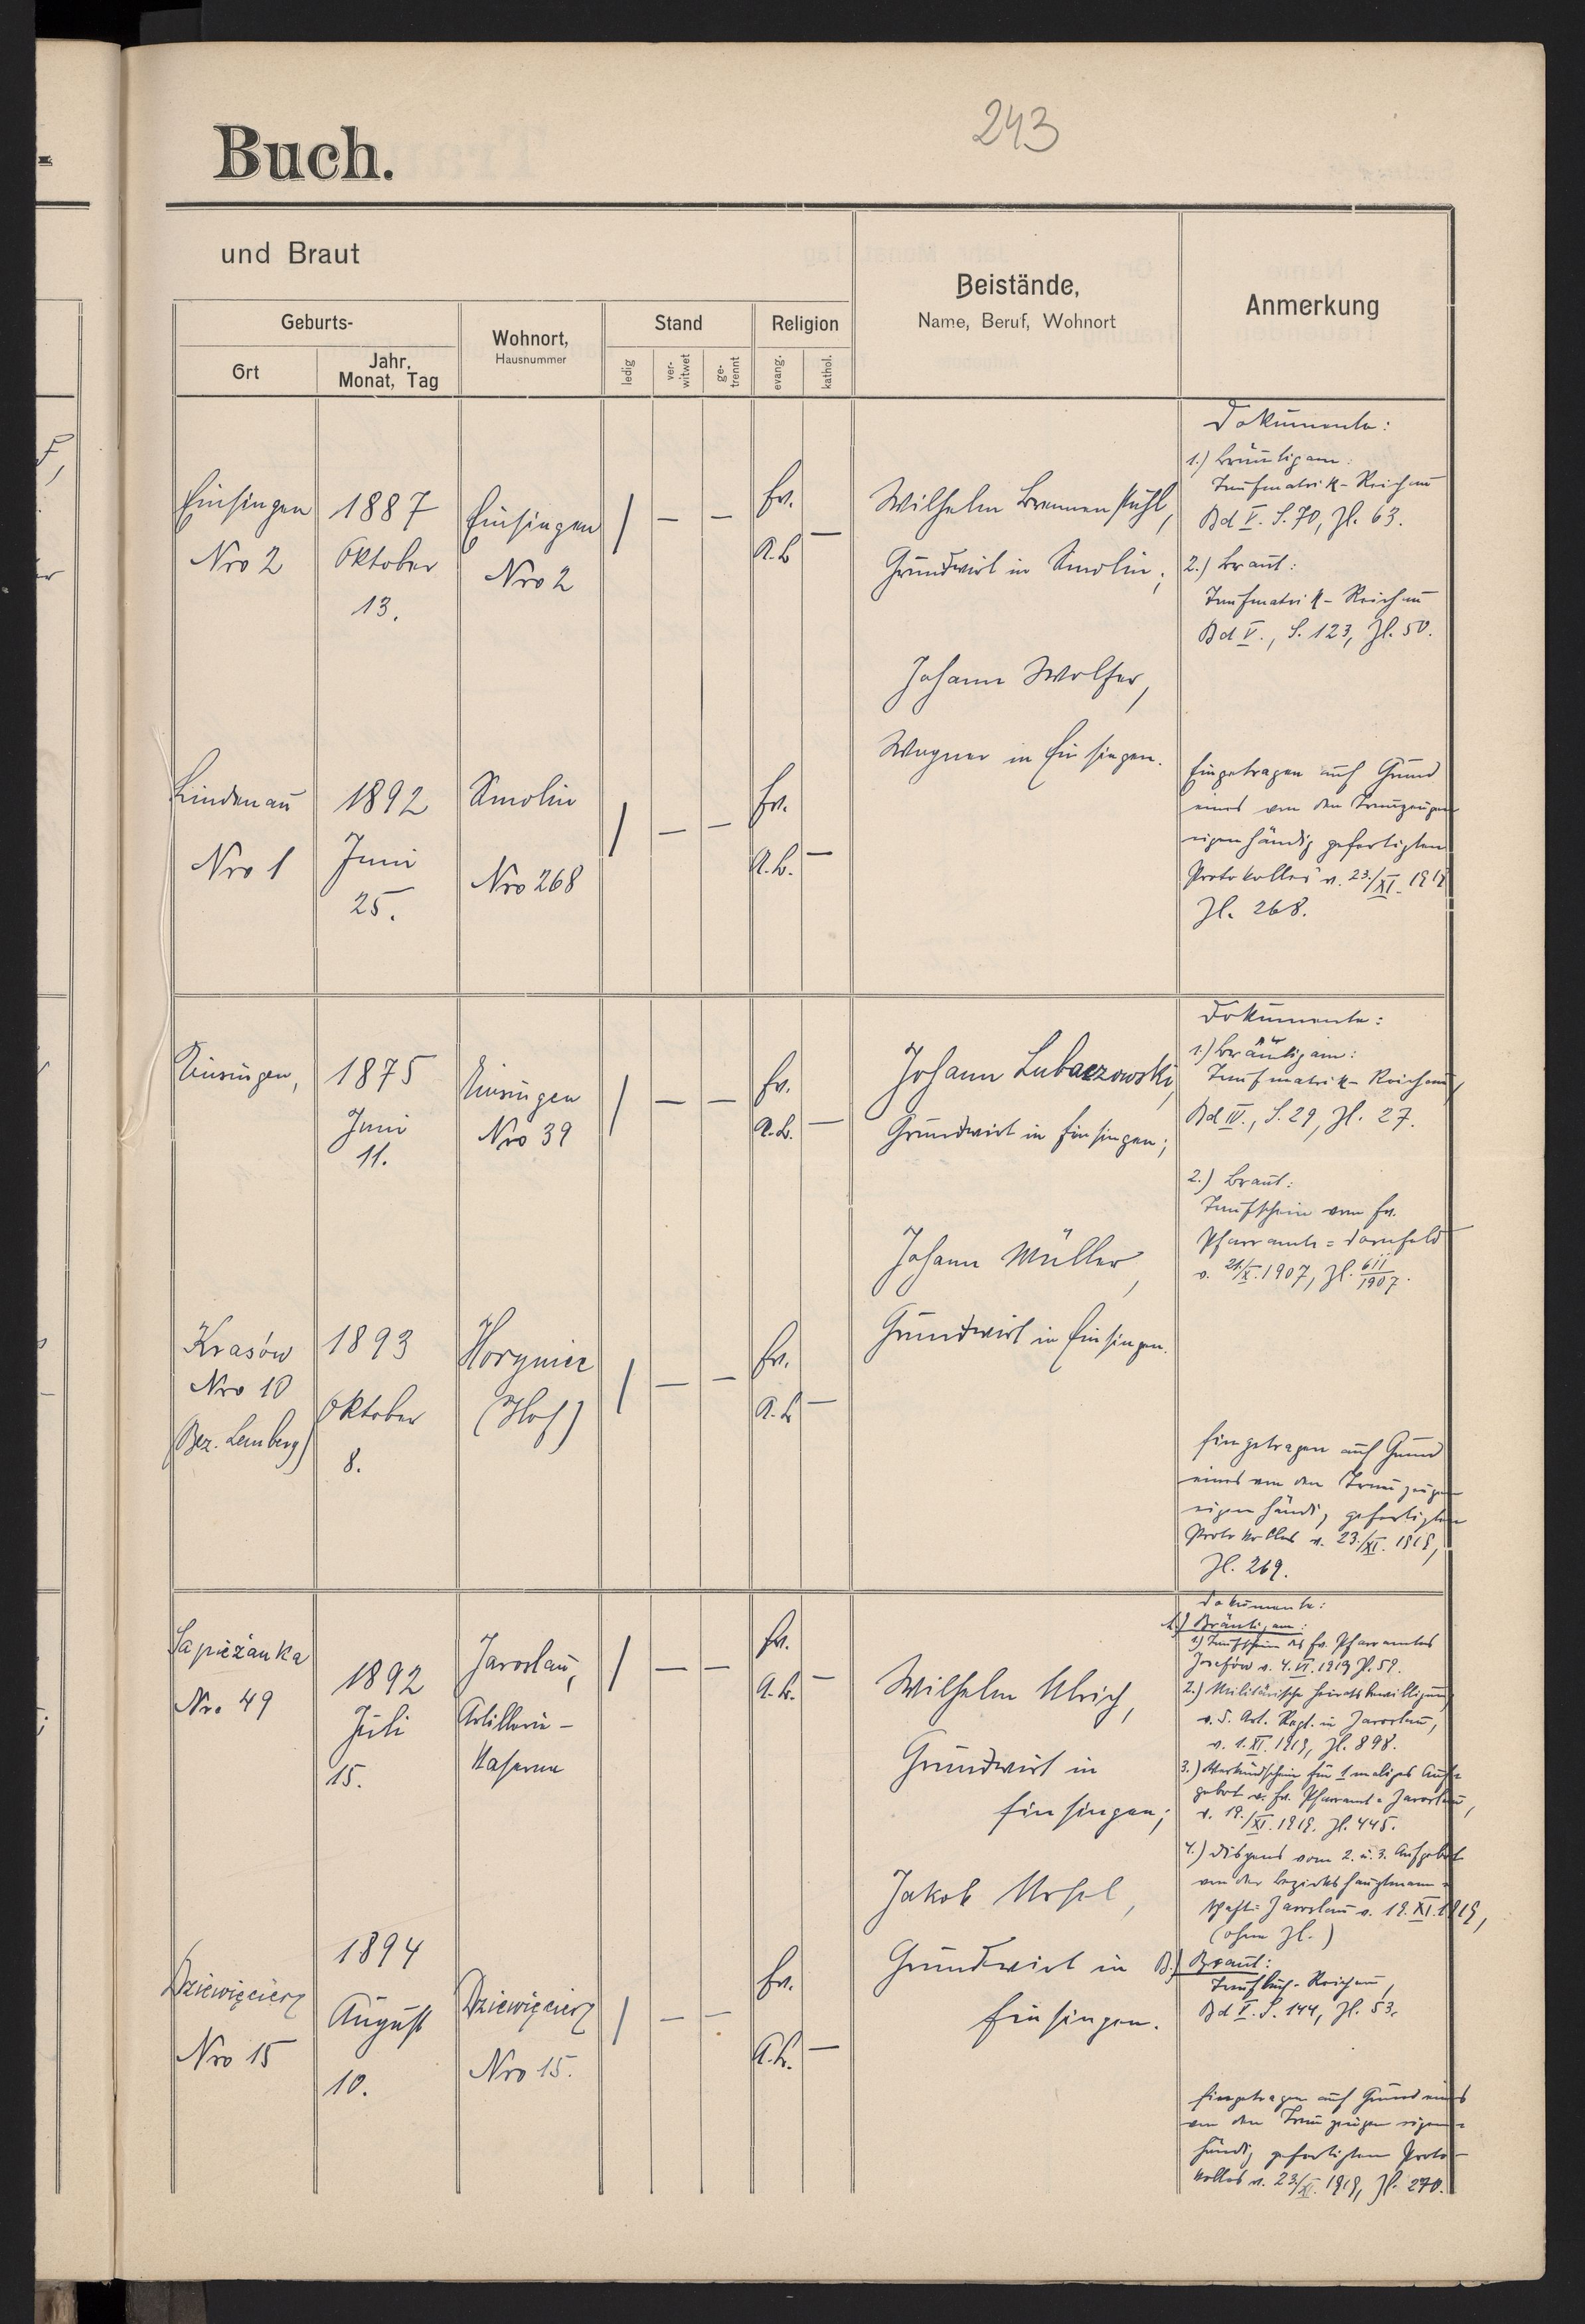 243
Buch.
und Braut
Geburts-
Ort
Jahr, Monat, Tag
Wohnort,
Hausnummer
Stand
ledig
ver-witwet
ge-trennt
Religion
evang.
kathol.
Beistände,
Name, Beruf, Wohnort
Anmerkung
Einsingen
Nro 2
1887
Oktober
13.
Einsingen
Nro 2
| — —
Ev.
A.B
—
Wilhelm Brennenstuhl,
Grundwirt in Smolin;
Johann Wolfer,
Wagner in Einsingen.
Dokumente:
1.) Bräutigam:
Taufmatrik-Reichau
Bd V. S. 70, Zl. 63.
2.) Braut:
Taufmatrik-Reichau
Bd V., S. 123, Zl. 50.
Lindenau
Nro 1
1892
Juni
25.
Smolin
Nro 268
| — —
Ev.
A.B.
—
Eingetragen auf Grund
eines von den Trauzeugen
eigenhändig gefertigten
Protokolles v. 23./XI. 1919
Zl. 268.
Einsingen,
1875
Juni
11.
Einsingen
Nro 39
| — —
Ev.
A.B.
—
Johann Lubaczowski,
Grundwirt in Einsingen;
Johann Müller,
Grundwirt in Einsingen.
Dokumente:
1.) Bräutigam:
Taufmatrik-Reichau,
Bd IV., S. 29, Zl. 27.
2.) Braut:
Taufschein vom Ev.
Pfarramte=Dornfeld
v. 21/X. 1907, Zl. 611/1907.
Krasów
Nro 10
(Bez. Lemberg)
1893
Oktober
8.
Horyniec
(Hof)
| — —
Ev.
A.B
—
Eingetragen auf Grund
eines von den Trauzeugen
eigenhändig gefertigten
Protokolles v. 23./XI. 1919,
Zl. 269.
Sapieżanka
Nro 49
1892
Juli
15.
Jaroslau,
Artillerie-
Kaserne
| — —
Ev.
A.B.
—
Wilhelm Ulrich,
Grundwirt in
Einsingen;
Jakob
Grundwirt in
Einsingen.
Dokumente:
A.) Bräutigam:
1.) Taufschein des Ev. Pfarramtes
Josefów v. 4. VI. 1919 Zl. 59.
2.) Militärische Heiratsbewilligung
v. 5. Art. Regt. in Jaroslau,
v. 1. XI. 1919, Zl. 898.
3.) Verkündschein für 1 maliges Auf=
gebot v. Ev. Pfarramt=Jaroslau,
v. 19./XI. 1919. Zl. 445.
4.) Dispens vom 2. u. 3. Aufgebot
von der Bezirkshauptmann=
schaft=Jaroslau v. 19. XI. 1919,
(ohne Zl.)
B.) Braut:
Taufbuch-Reichau,
Bd V. S. 144, Zl. 53.
Dziewięcierz
Nro 15
1894
August
10.
Dziewięcierz
Nro 15.
| — —
Ev.
A.B.
—
Eingetragen auf Grund eines
von den Trauzeugen eigen=
händig gefertigten Proto=
kolles v. 23/XI. 1919, Zl. 270.